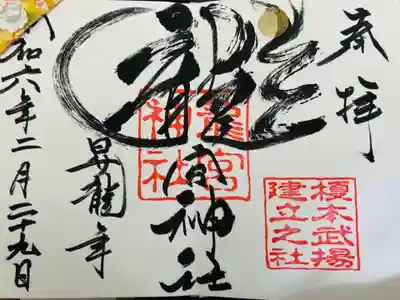 奉拝
龍宮神社
龍宮
神社
榎本武揚
建立之社
昇龍年
令和六年二月二十九日